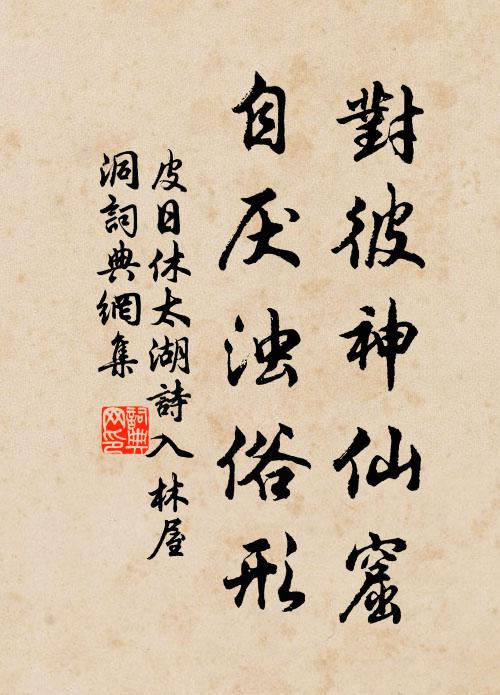 對彼神仙窟
自厌浊俗形
皮日休太湖詩入林屋
洞詞典網集
詞典网印